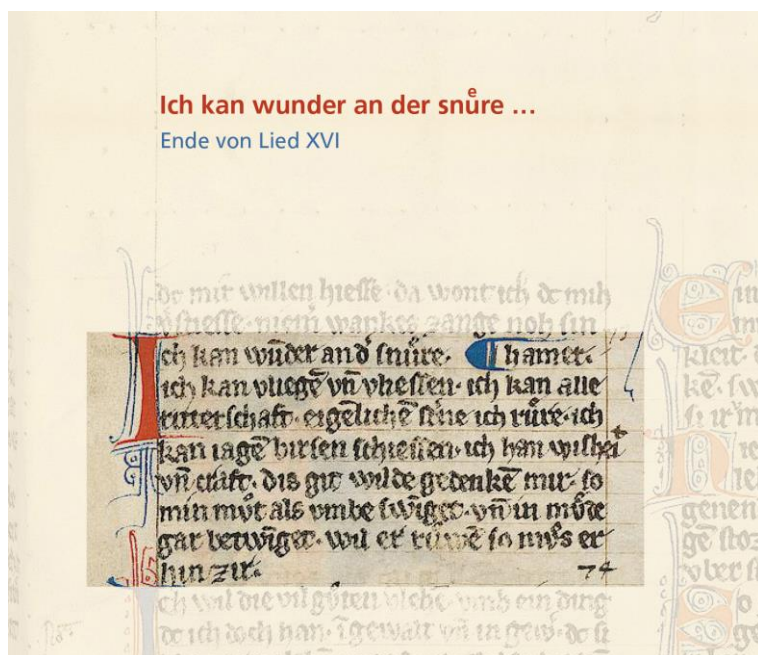 Ich kan wunder an der snuͤre …
Ende von Lied XVI
dc mir willen hiesse · da wont ich dc mih
stiesse · niem̄ wankes zange noh sin
Ich kan wūder an d᷑ snuͤre · hamer ·
ich kan vliegē vn̄ vliessen · ich kan alle
ritterschaft · eigēlichē ich ruͤre · ich
kan iagē birsen schiessen · ich han wishei
vn̄ craft · dis git wilde gedenkē mir · so
min muͦt als vmbe swīget · vn̄ in
gar betwīget · wil er so muͦs er
hin zir ·
74
ch wil die vil guͦten vlehē · vmb ein ding
dc ich doch han · ī gewalt vn̄ in dc si